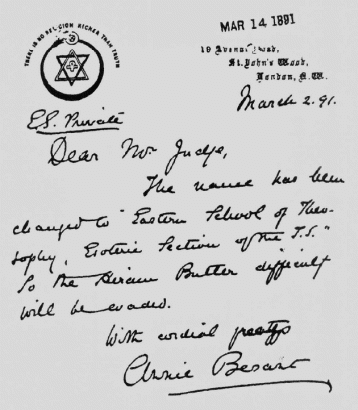 THERE IS NO RELIGION HIGHER THAN TRUTH
MAR 14 1891
19 Avenue Road,
St. John's Wood,
London, N.W.
March 2. 91.
E.S. Private
Dear Mr Judge,
The name has been
changed to "Eastern School of Theo-
sophy, Esoteric Section of the T.S."
So the Hiram Butler difficulty
will be evaded.
With cordial
Annie Besant